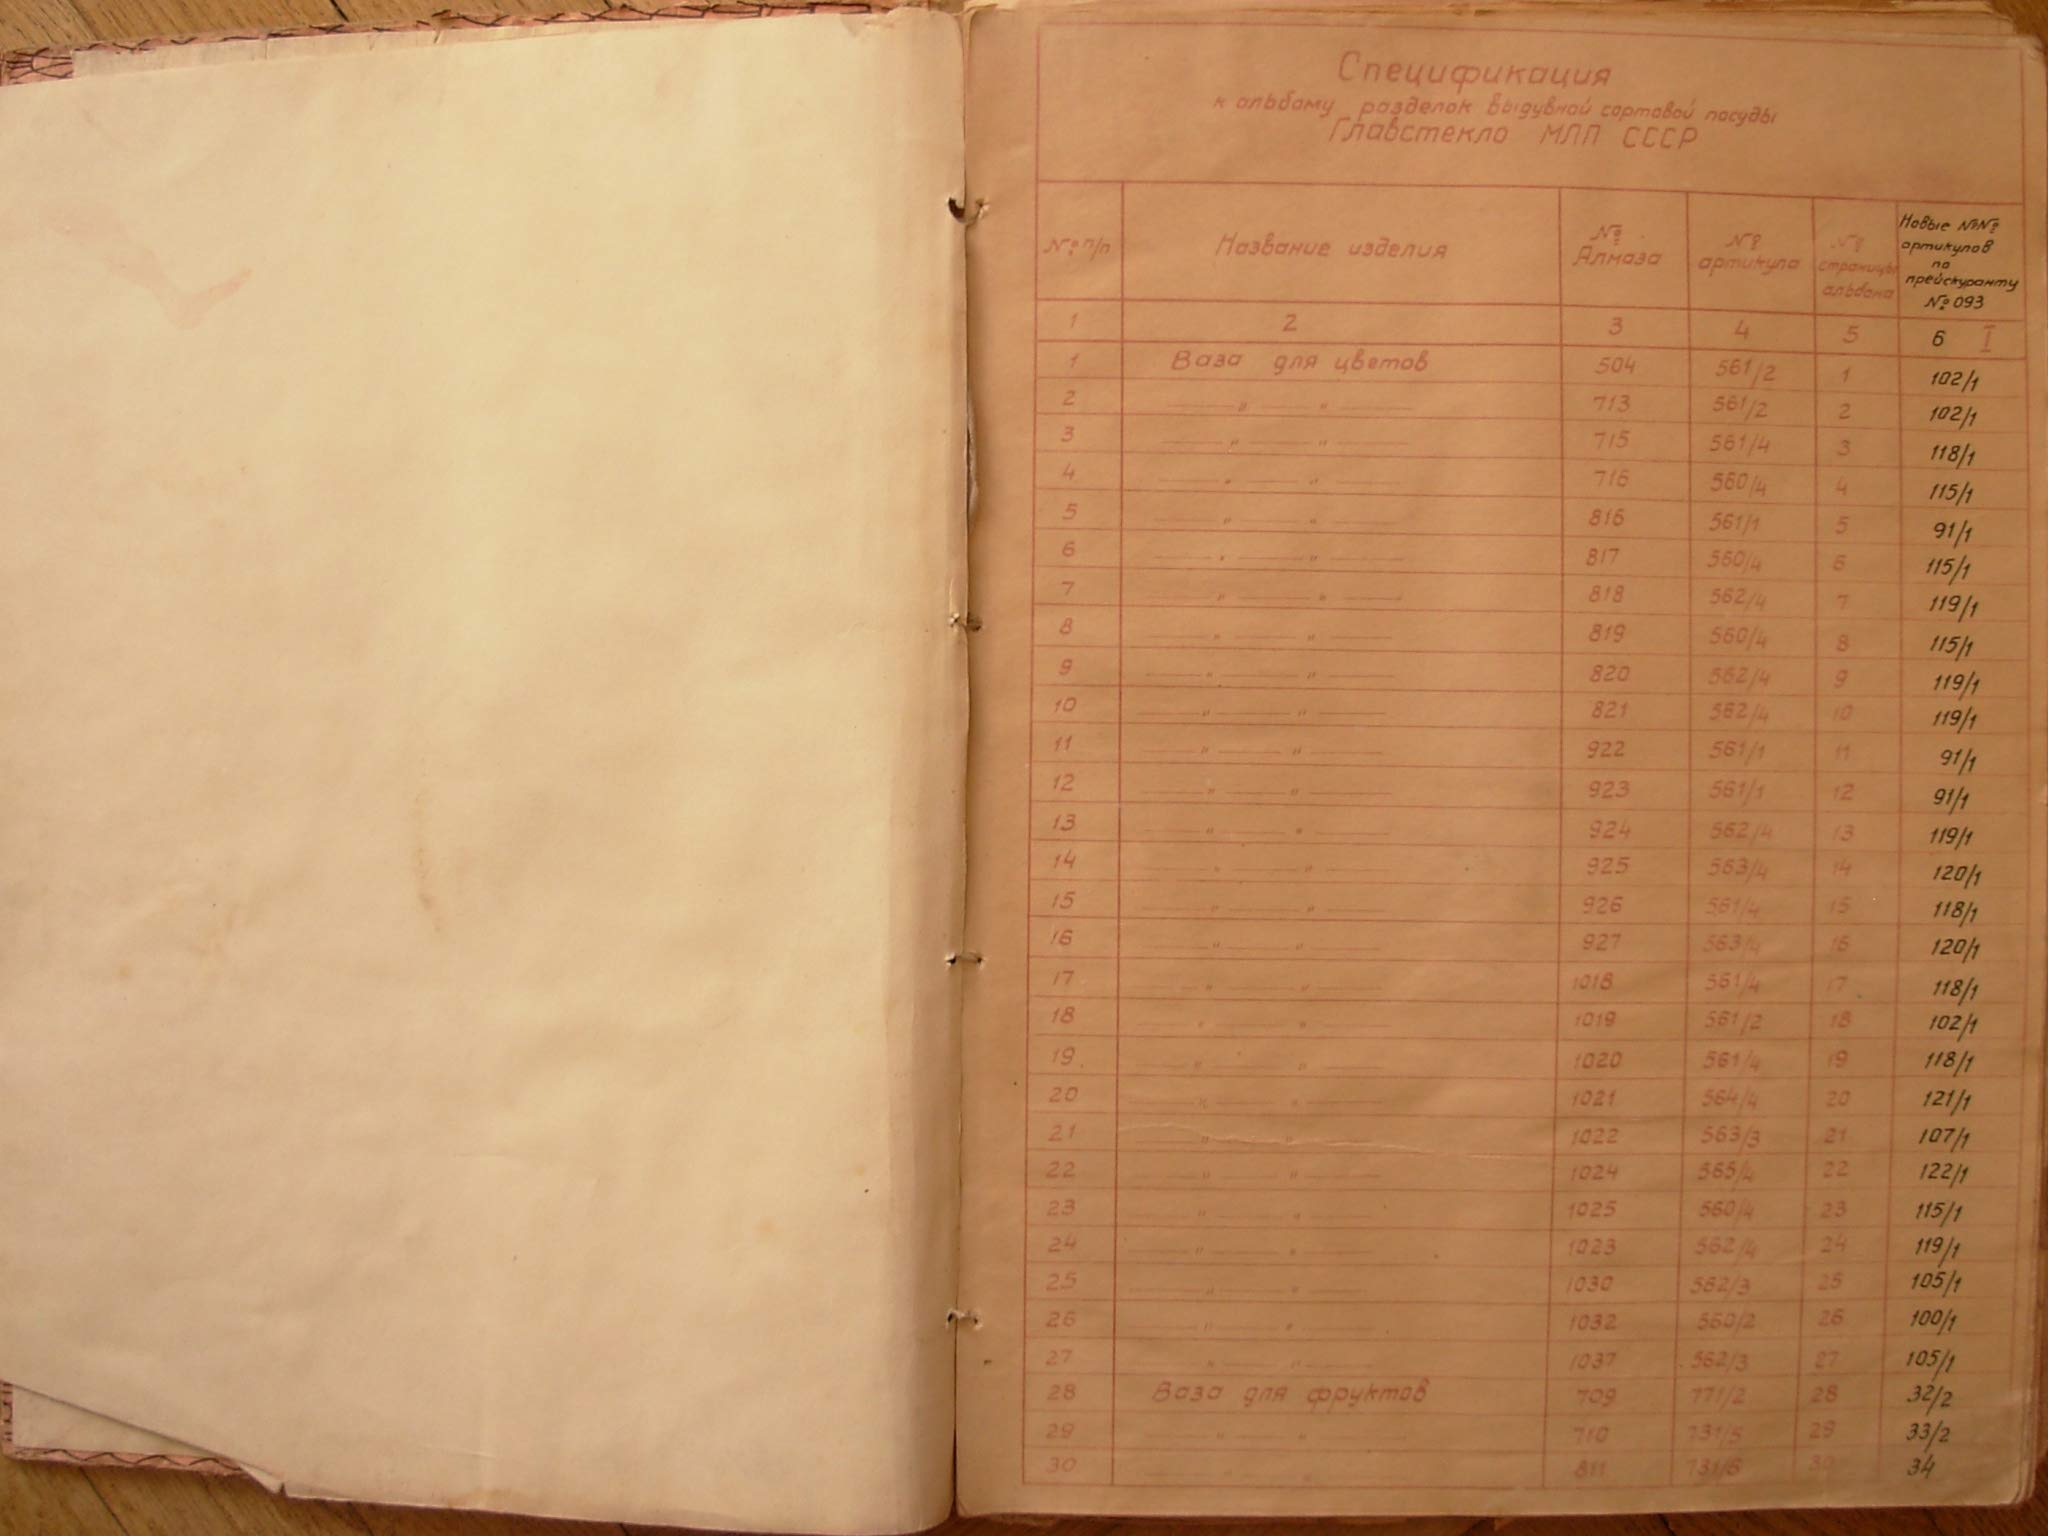 Спецификация
к альбому разделок выдувной сортовой посуды
Главстекло МЛП СССР
№ п/п Название изделия № Алмаза № артикула № страницы альбома Новые №№ артикулов по прейскуранту № 093
1 2 3 4 5 6 I
1 Ваза для цветов 504 561/2 1 102/1
2 —— " —— " —— 713 561/2 2 102/1
3 —— " —— " —— 715 561/4 3 118/1
4 —— " —— " —— 716 560/4 4 115/1
5 —— " —— " —— 816 561/1 5 91/1
6 —— " —— " —— 817 560/4 6 115/1
7 —— " —— " —— 818 562/4 7 119/1
8 —— " —— " —— 819 560/4 8 115/1
9 —— " —— " —— 820 562/4 9 119/1
10 —— " —— " —— 821 562/4 10 119/1
11 —— " —— " —— 922 561/1 11 91/1
12 —— " —— " —— 923 561/1 12 91/1
13 —— " —— " —— 924 562/4 13 119/1
14 —— " —— " —— 925 563/4 14 120/1
15 —— " —— " —— 926 561/4 15 118/1
16 —— " —— " —— 927 563/4 16 120/1
17 —— " —— " —— 1018 561/4 17 118/1
18 —— " —— " —— 1019 561/2 18 102/1
19 —— " —— " —— 1020 561/4 19 118/1
20 —— " —— " —— 1021 564/4 20 121/1
21 —— " —— " —— 1022 563/3 21 107/1
22 —— " —— " —— 1024 565/4 22 122/1
23 —— " —— " —— 1025 560/4 23 115/1
24 —— " —— " —— 1023 562/4 24 119/1
25 —— " —— " —— 1030 562/3 25 105/1
26 —— " —— " —— 1032 560/2 26 100/1
27 —— " —— " —— 1037 562/3 27 105/1
28 Ваза для фруктов 709 771/2 28 32/2
29 —— " —— " —— 710 731/5 29 33/2
30 —— " —— 811 731/6 30 34